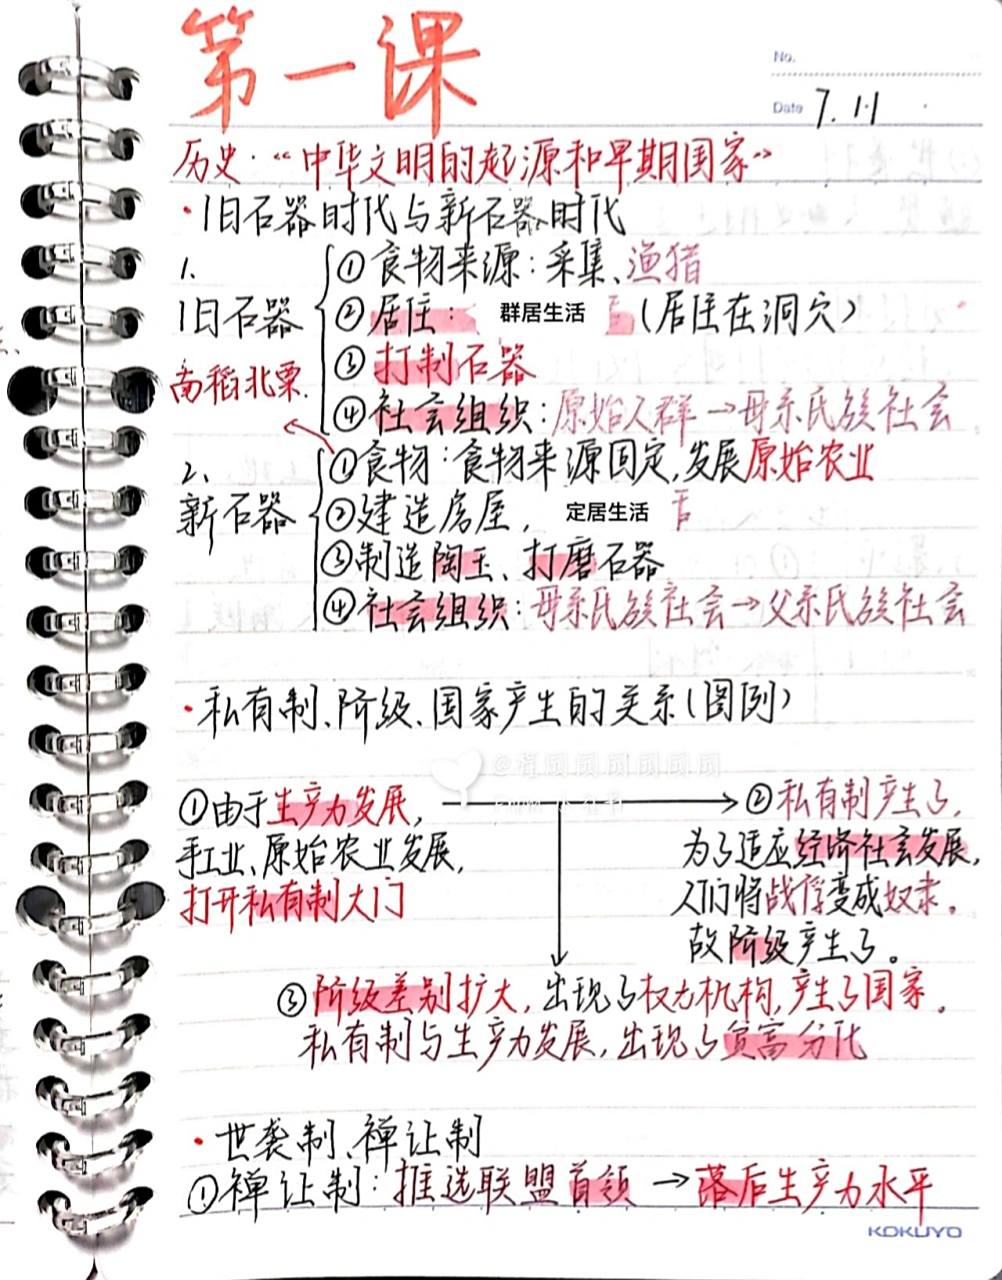 第一课
No.
Date 7.11
历史：“中华文明的起源和早期国家”
·旧石器时代与新石器时代
1.
旧石器
①食物来源：采集、渔猎
②居住： 群居生活 （居住在洞穴）
③打制石器
④社会组织：原始人群→母系氏族社会
南稻北粟.
2.
新石器
①食物：食物来源固定，发展原始农业
②建造房屋， 定居生活
③制造陶玉、打磨石器
④社会组织：母系氏族社会→父系氏族社会
·私有制、阶级、国家产生的关系（图例）
①由于生产力发展，
手工业、原始农业发展，
打开私有制大门
②私有制产生了，
为了适应经济社会发展，
人们将战俘变成奴隶。
故阶级产生了。
③阶级差别扩大，出现了权力机构，产生了国家。
私有制与生产力发展，出现了贫富分化
·世袭制、禅让制
①禅让制：推选联盟首领→落后生产力水平
KOKUYO